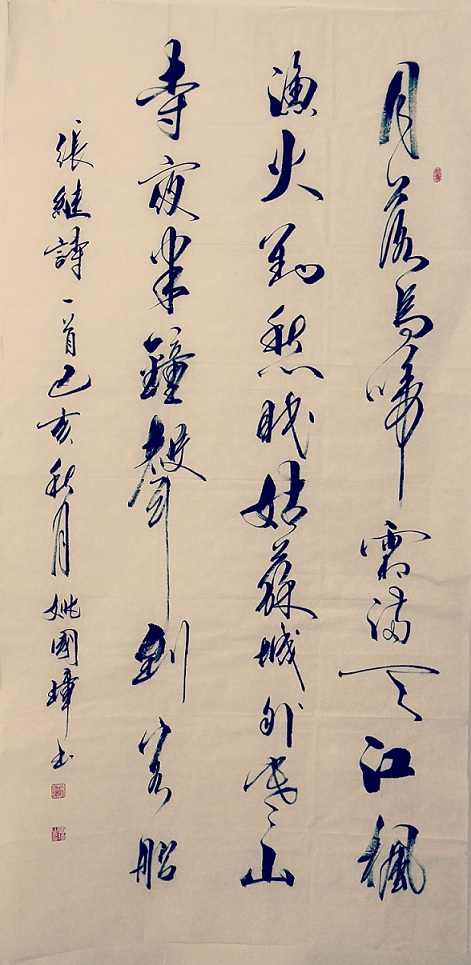 月落烏啼霜滿天江楓
漁火對愁眠姑蘇城外寒山
寺夜半鐘聲到客船
張継詩一首己亥秋月姚國璋书